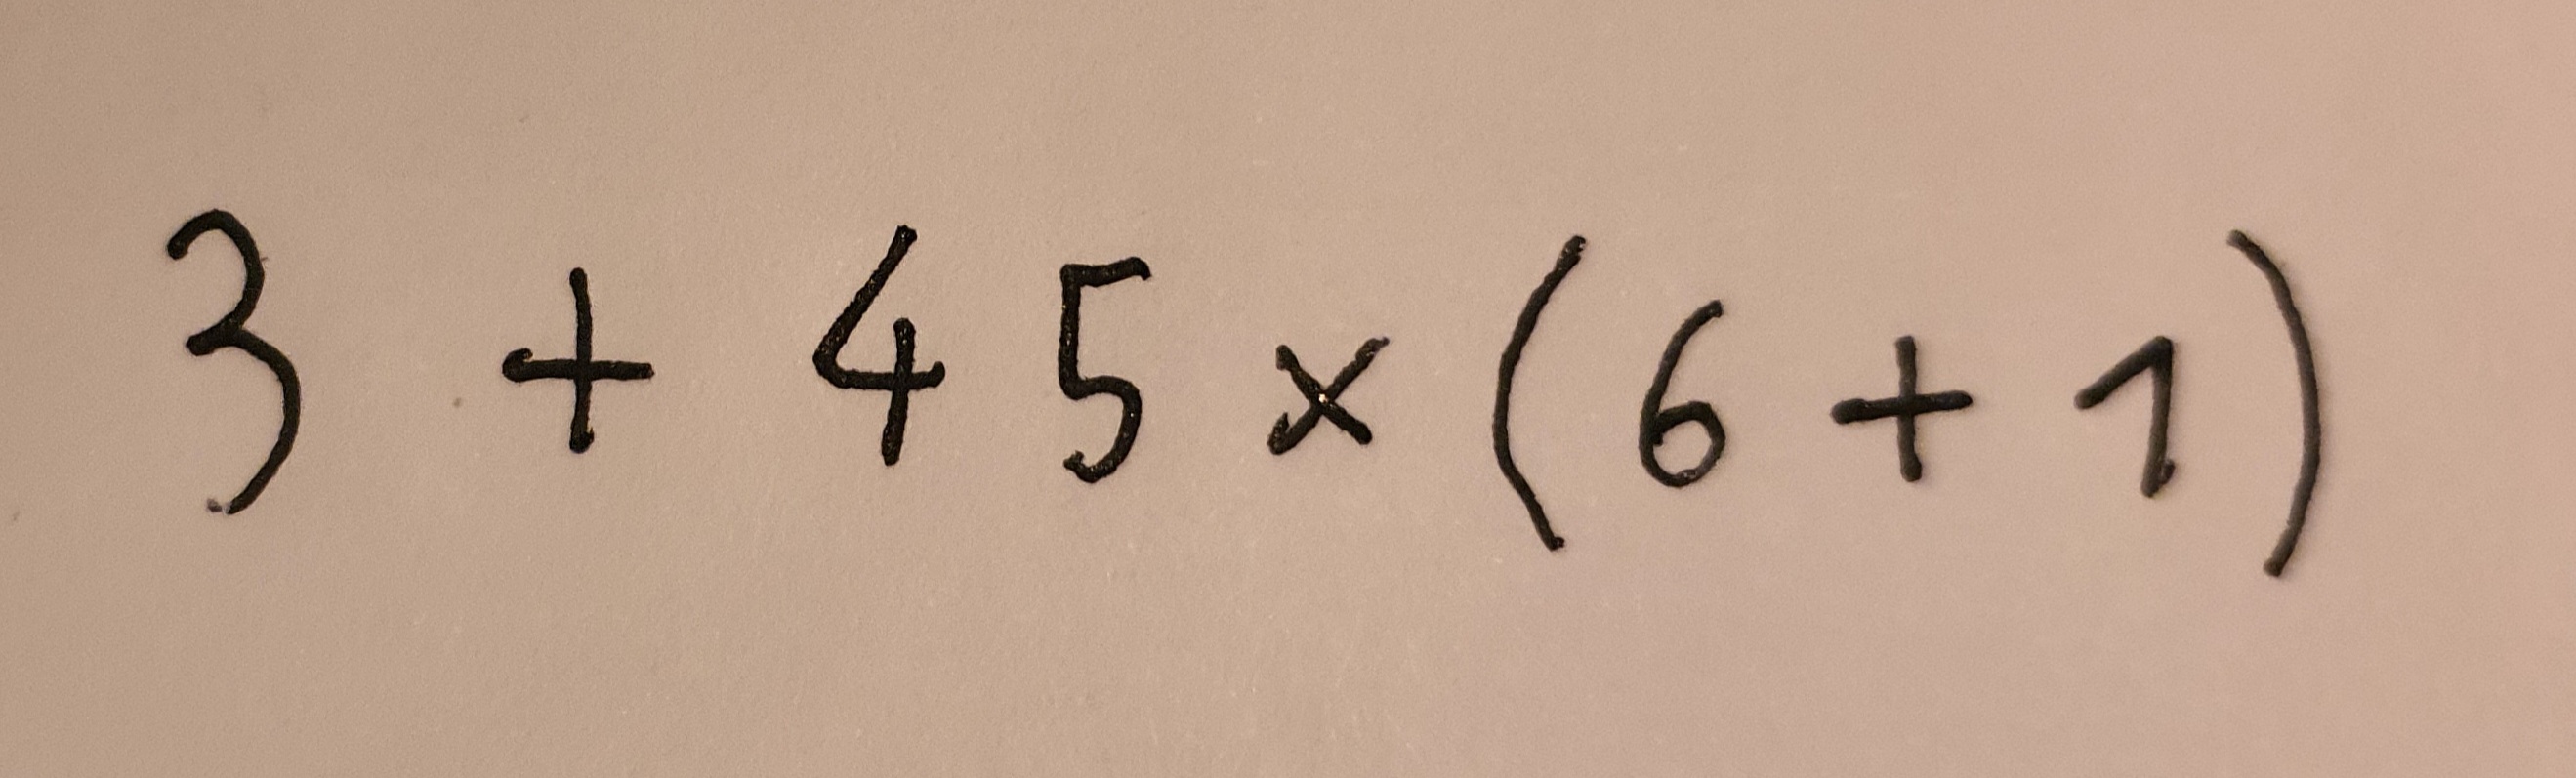 3 + 45 × (6 + 1)